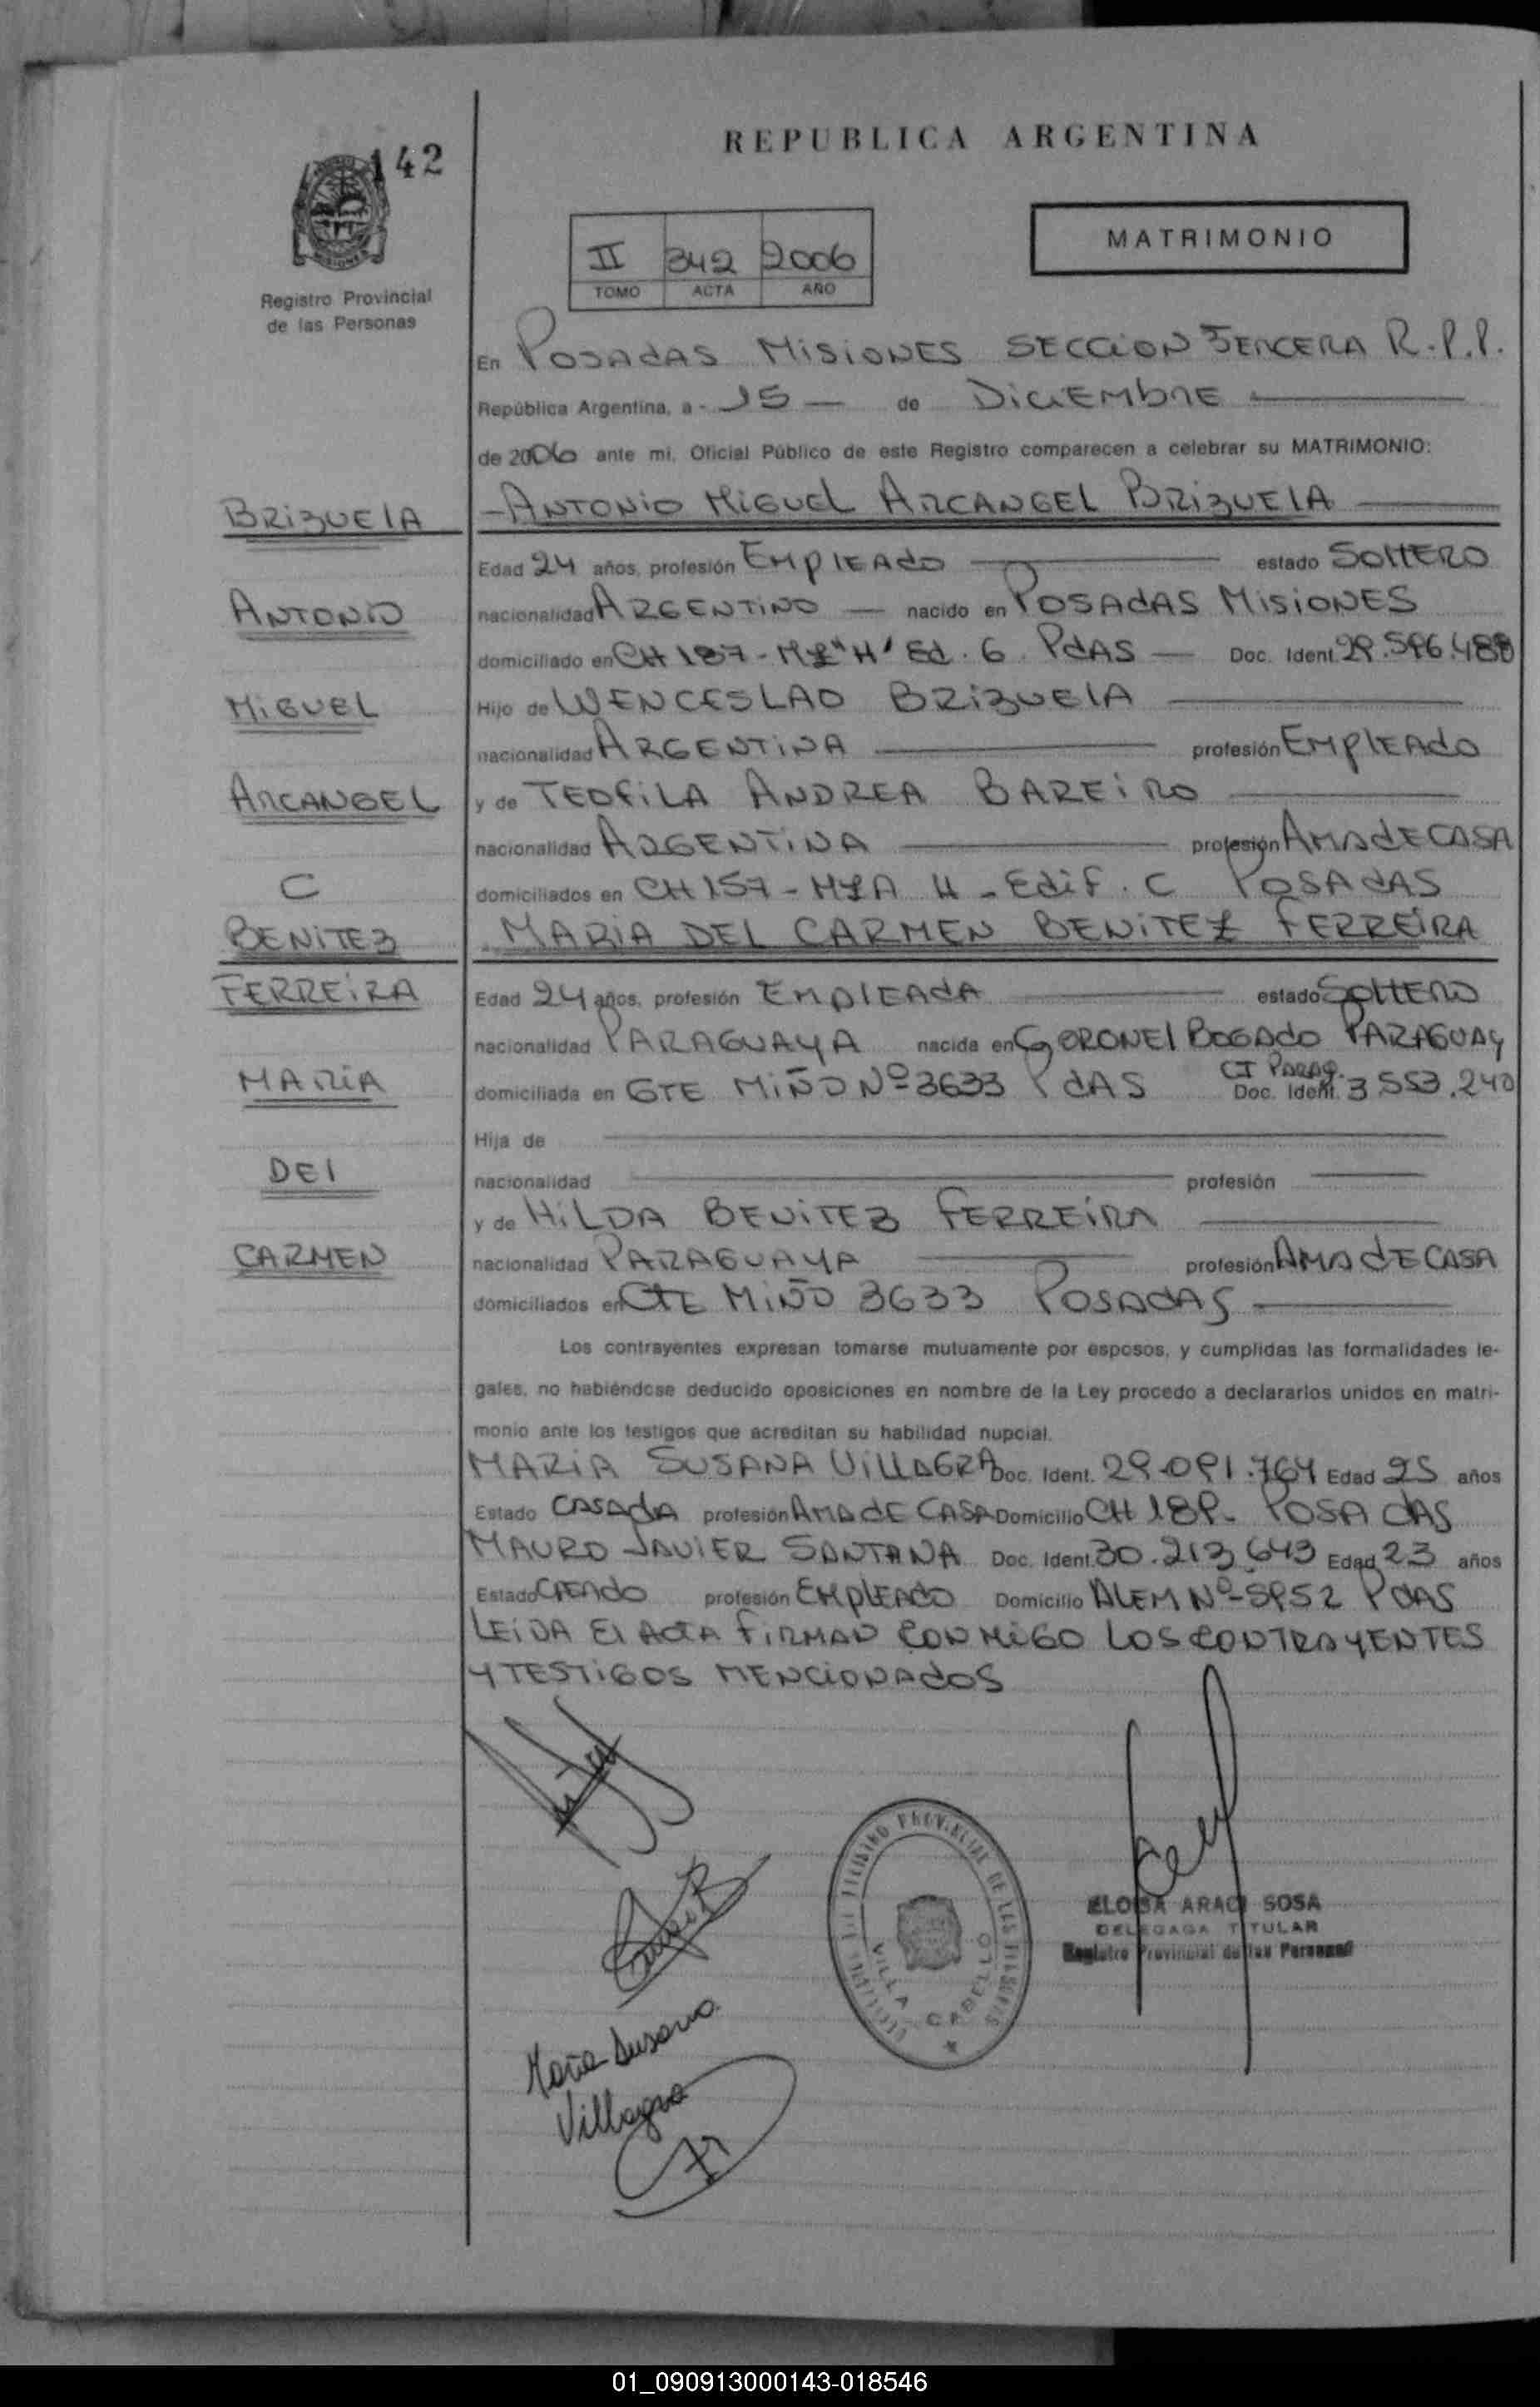 142
REPUBLICA ARGENTINA
MISIONES
Registro Provincial
de las Personas
II 342 2006
TOMO ACTA AÑO
MATRIMONIO
En POSADAS MISIONES SECCION TERCERA R.P.P.
República Argentina, a - 15 — de DICIEMBRE
de 2006 ante mi, Oficial Público de este Registro comparecen a celebrar su MATRIMONIO:
BRIZUELA
- ANTONIO MIGUEL ARCANGEL BRIZUELA
Edad 24 años, profesión EMPLEADO estado SOLTERO
ANTONIO
nacionalidad ARGENTINO — nacido en POSADAS MISIONES
domiciliado en CH 187 - MZ "H" Ed. 6 PdAS — Doc. Ident. 29.596.488
MIGUEL
Hijo de WENCESLAO BRIZUELA
nacionalidad ARGENTINA profesión EMPLEADO
ARCANGEL
y de TEOFILA ANDREA BAREIRO
nacionalidad ARGENTINA profesión AMA DE CASA
C
domiciliados en CH 157 - MZA H - Edif. C POSADAS
BENITEZ
MARIA DEL CARMEN BENITEZ FERREIRA
FERREIRA
Edad 24 años, profesión EMPLEADA estado SOLTERO
nacionalidad PARAGUAYA nacida en CORONEL BOGADO PARAGUAY
MARIA
domiciliada en GTE MIÑO Nº 3633 PdAS CI PARAG. Doc. Ident. 3.553.240
Hija de
DEL
nacionalidad profesión
y de HILDA BENITEZ FERREIRA
CARMEN
nacionalidad PARAGUAYA profesión AMA DE CASA
domiciliados en CTE MIÑO 3633 POSADAS
Los contrayentes expresan tomarse mutuamente por esposos, y cumplidas las formalidades le-
gales, no habiéndose deducido oposiciones en nombre de la Ley procedo a declararlos unidos en matri-
monio ante los testigos que acreditan su habilidad nupcial.
MARIA SUSANA VILLAGRA Doc. Ident. 29.091.764 Edad 25 años
Estado CASADA profesión AMA DE CASA Domicilio CH 189 - POSADAS
MAURO JAVIER SANTANA Doc. Ident. 30.213.643 Edad 23 años
Estado profesión EMPLEADO Domicilio ALEM Nº 5952 PdAS
LEIDA EL ACTA FIRMAN CONMIGO LOS CONTRAYENTES
Y TESTIGOS MENCIONADOS
REGISTRO PROVINCIAL DE LAS PERSONAS
VILLA CABELLO
ELOISA ARACI SOSA
DELEGADA TITULAR
Registro Provincial de las Personas
María Susana
Villagra
01_090913000143-018546